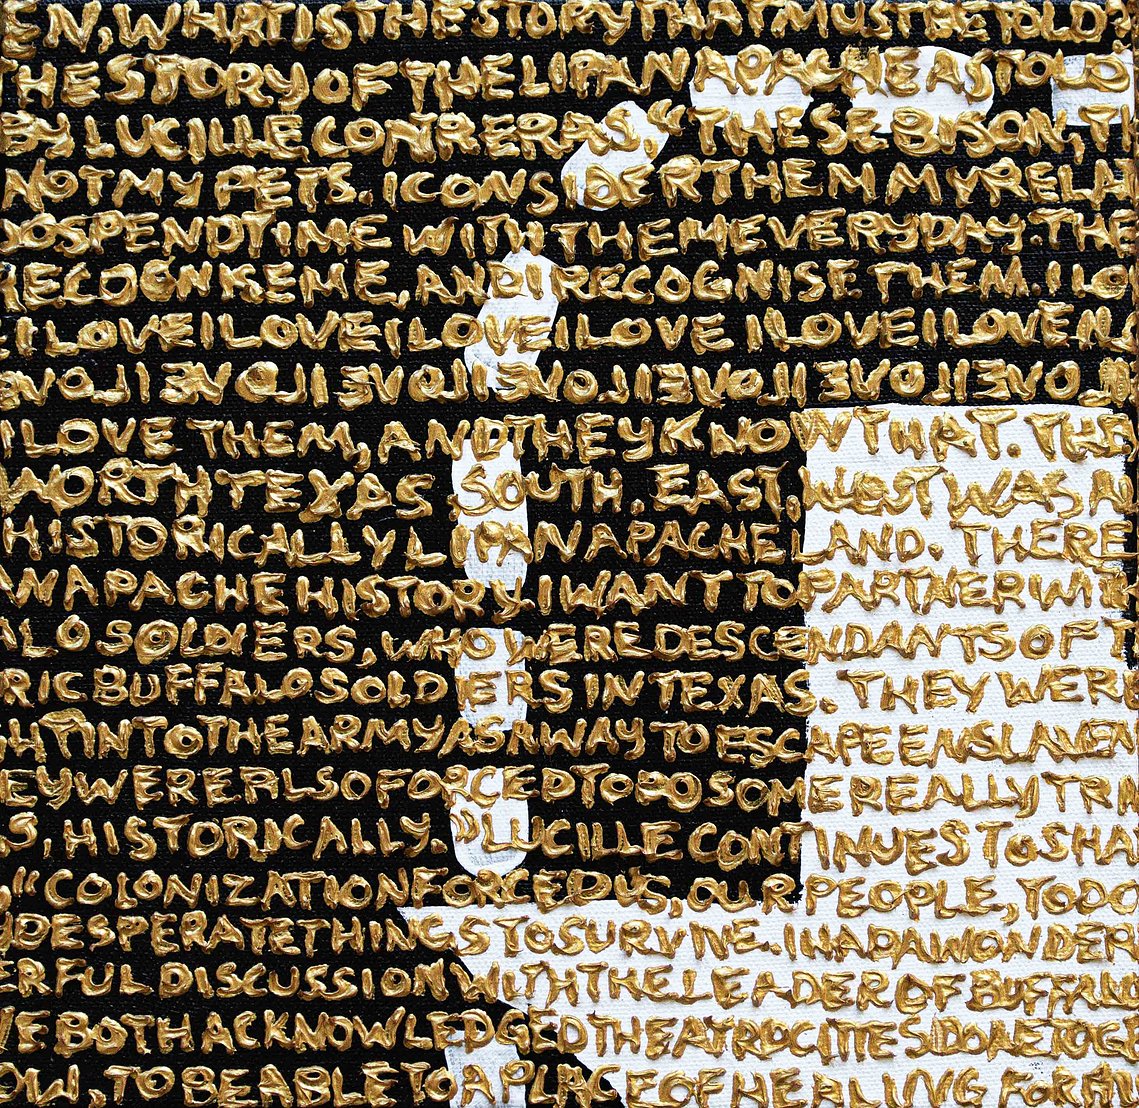 EN, WHAT IS THE STORY THAT MUST BE TOLD?
HE STORY OF THE LIPAN APACHE AS TOLD
BY LUCILLE CONTRERAS. "THESE BISON, TH
NOT MY PETS. I CONSIDER THEM MY RELA
O SPEND TIME WITH THEM EVERYDAY. THE
RECOGNISE ME, AND I RECOGNISE THEM. I LO
I LOVE I LOVE I LOVE I LOVE I LOVE I LOVE I LOVE I LOVE N L
VOLI EVOLI EVOLI EVOLI EVOLI EVOLI EVOLI EVO
I LOVE THEM, AND THEY KNOW THAT. THE
NORTH TEXAS SOUTH. EAST. WEST WAS AL
HISTORICALLY LIPAN APACHE LAND. THERE
N APACHE HISTORY. I WANT TO PARTNER WITH
LO SOLDIERS, WHO WERE DESCENDANTS OF T
RIC BUFFALO SOLDIERS IN TEXAS. THEY WERE
HT INTO THE ARMY AS A WAY TO ESCAPE ENSLAVEM
EY WERE ALSO FORCED TO DO SOME REALLY TRA
S, HISTORICALLY." LUCILLE CONTINUES TO SHA
"COLONIZATION FORCED US, OUR PEOPLE, TO DO
DESPERATE THINGS TO SURVIVE. I HAD A WONDER
ERFUL DISCUSSION WITH THE LEADER OF BUFFALO
VE BOTH ACKNOWLEDGED THE ATROCITIES DONE TOGE
OW, TO BE ABLE TO A PLACE OF HEALING FOR